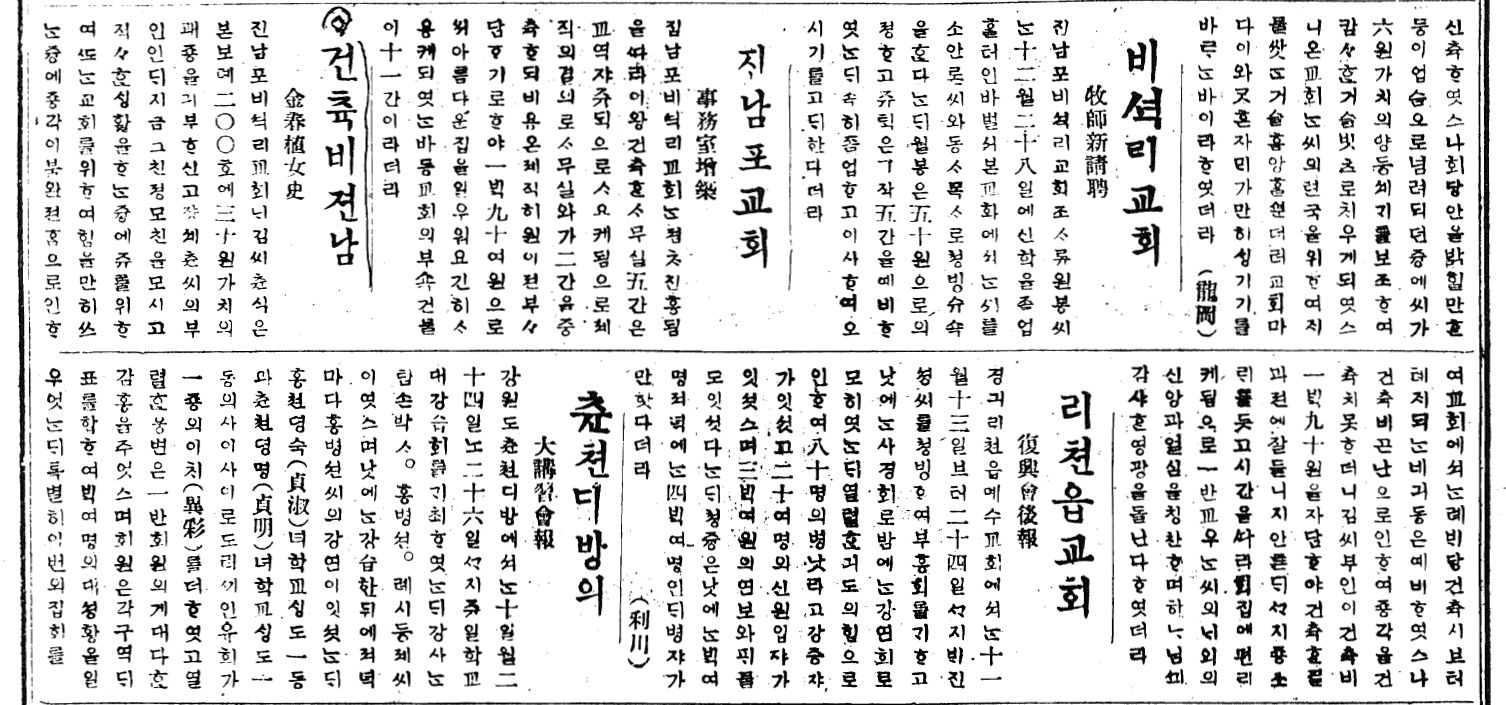 신츅ᄒᆞ엿스나회당안을밝힐만ᄒᆞᆫ
등이업슴으로념려되던즁에씨가
六원가치의양등 를보조ᄒᆞ여
캄々ᄒᆞᆫ거슬빗츠로치우게되엿스
니온교회ᄂᆞᆫ씨의텬국을위ᄒᆞ여ᄌᆡ
물쌋ᄂᆞᆫ거슬흠앙홀ᄲᅮᆫ더러교회마
다이와ᄀᆞᆺ흔자ᄆᆡ가만히싱기기를
바ᄅᆞᄂᆞᆫ바이라ᄒᆞ엿더라 (龍岡)
비셕리교회
牧師新請聘
진남포비셕리교회조ᄉᆞ류원봉씨
ᄂᆞᆫ十二월二十八일에신학을죨업
홀터인바벌셔본교회에셔ᄂᆞᆫ씨를
소안론씨와동ᄉᆞ목ᄉᆞ로쳥빙슈쇽
을ᄒᆞᆫ다ᄂᆞᆫᄃᆡ월봉은五十원으로의
졍ᄒᆞ고쥬ᄐᆡᆨ은ㄱ작五간을예비ᄒᆞ
엿ᄂᆞᆫᄃᆡ속히죨업ᄒᆞ고이사ᄒᆞ여오
시기를고ᄃᆡ한다더라
지남포교회
事務室增築
진남포비셕리교회ᄂᆞᆫ졈ᄎᆞ진흥됨
을ᄯᅡ라이왕건츅ᄒᆞᆫᄉᆞ무실五간은
교역쟈쥬ᄐᆡᆨ으로ᄉᆞ요케됨으로졔
직회결의로ᄉᆞ무실와가二간음증
츅ᄒᆞ되비용온졔직히원이젼부々
담ᄒᆞ기로ᄒᆞ야一ᄇᆡᆨ九十여원으로
써아름다운집을일우워요긴히ᄉᆞ
용케되엿ᄂᆞᆫ바동교회의부쇽건물
이十一간이라더라
건츅비젼남
金春植女史
진남포비셕리교회ᄂᆡ김씨츈식은
본보뎨二〇〇호에三十원가치의
패죵을긔부ᄒᆞ신고 씨의부
인인ᄃᆡ지금그친졍모친을모시고
직々ᄒᆞᆫ싱활을ᄒᆞᄂᆞᆫ즁에쥬를위ᄒᆞ
여ᄯᅩᄂᆞᆫ교회를위ᄒᆞ여힘을만히쓰
ᄂᆞᆫ즁에죵각이불완젼홈으로인ᄒᆞ
여교회에셔ᄂᆞᆫ례ᄇᆡ당건츅시브터
테지되ᄂᆞᆫ비긔동은예비ᄒᆞ엿스나
건츅비곤난으로인ᄒᆞ여죵각을건
츅치못ᄒᆞ더니김씨부인이건츅비
一ᄇᆡᆨ九十원을자담ᄒᆞ야건츅ᄒᆞᆫ결
과젼에잘들니지안튼ᄃᆡᄭᅡ지죵소
ᄅᆡ를듯고시간을ᄯᅡ라회집에편리
케됨으로一반교우ᄂᆞᆫ씨의ᄂᆡ외의
신앙과열심을칭찬ᄒᆞ며하ᄂᆞ님ᄭᅴ
감샤ᄒᆞ영광을돌닌다ᄒᆞ엿더라
리쳔읍교회
復興會後報
경긔리쳔읍예수교회에셔ᄂᆞᆫ十一
월十三일브터二十四일ᄭᅡ지ᄇᆡᆨ진
셩씨를쳥빙ᄒᆞ여부흥회를기ᄒᆞ고
낫에ᄂᆞᆫ사경회로밤에ᄂᆞᆫ강연회로
모히엿ᄂᆞᆫᄃᆡ열렬ᄒᆞᆫ긔도의힘으로
인ᄒᆞ여八十명의병낫라고강증쟈
가잇섯고二十여명의신원입쟈가
잇섯스며三ᄇᆡᆨ여원의연보와픠물
도잇섯다ᄂᆞᆫᄃᆡ쳥즁은낫에ᄂᆞᆫᄇᆡᆨ여
명져녁에ᄂᆞᆫ四ᄇᆡᆨ여명인ᄃᆡ병쟈가
만핫다더라 (利川)
츈쳔디방의
大講習會報
강원도츈쳔디방에셔ᄂᆞᆫ十월월二
十四일노二十六일ᄭᅡ지쥬일학교
대강습회를기최ᄒᆞ엿ᄂᆞᆫᄃᆡ강사ᄂᆞᆫ
탑손박ᄉᆞ。홍병션。례시동졔씨
이엿스며낫에ᄂᆞᆫ강습한뒤에져녁
마다홍병션씨의강연이잇섯ᄂᆞᆫᄃᆡ
홍쳔뎡숙(貞淑)녀학교싱도一동
과츈쳔뎡명(貞明)녀학교싱도一
동의사이사이로드리ᄭᅵ인유희가
一죵외이ᄎᆡ(異彩)를더ᄒᆞ엿고열
렬ᄒᆞᆫ웅변은一반회원의게대다ᄒᆞᆫ
감흥을주엇스며회원은각구역ᄃᆡ
표를합ᄒᆞ여ᄇᆡᆨ여명의대셩황을일
우엇ᄂᆞᆫᄃᆡ특별히이번외집회를